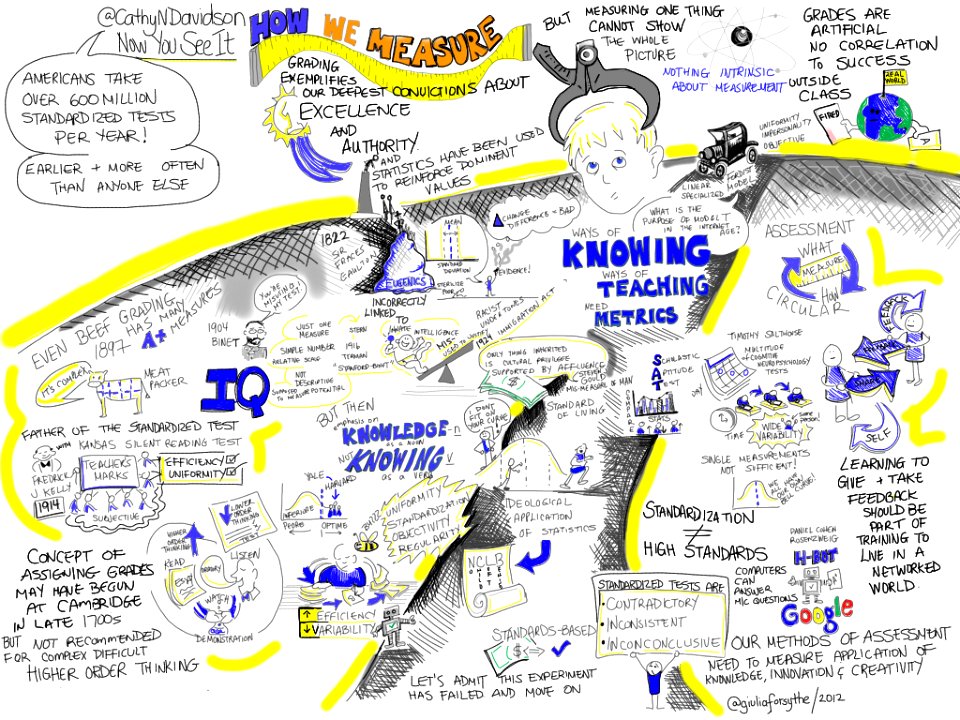 @CathyNDavidson
Now You See It
AMERICANS TAKE
OVER 600 MILLION
STANDARDIZED TESTS
PER YEAR!
EARLIER + MORE OFTEN
THAN ANYONE ELSE
HOW WE MEASURE
GRADING
EXEMPLIFIES
OUR DEEPEST CONVICTIONS ABOUT
EXCELLENCE
AND
AUTHORITY
AND
STATISTICS HAVE BEEN USED
TO REINFORCE DOMINENT
VALUES
BUT MEASURING ONE THING
CANNOT SHOW
THE WHOLE
PICTURE
NOTHING INTRINSIC
ABOUT MEASUREMENT
GRADES ARE
ARTIFICIAL
NO CORRELATION
TO SUCCESS
OUTSIDE
CLASS
REAL
WORLD
FIRED
A
UNIFORMITY
IMPERSONALITY
OBJECTIVE
LINEAR
SPECIALIZED
FORDIST
MODEL
WHAT IS THE
PURPOSE OF MODEL T
IN THE INTERNET
AGE?
WAYS OF
KNOWING
WAYS OF
TEACHING
NEED
METRICS
ASSESSMENT
WHAT
MEASURE
HOW
CIRCULAR
1822
SIR
EUGENICS
MEAN
STANDARD
DEVIATION
CHANGE
DIFFERENCE = BAD
EVIDENCE!
STERILIZE
POOR
INCORRECTLY
LINKED
TO
INNATE
INTELLIGENCE
RACIST
UNDERTONES
IMMIGRATION ACT
1924
EVEN BEEF GRADING
HAS MANY
MEASURES
1897
A+
IT'S COMPLEX
MEAT
PACKER
YOU'RE
MISUSING
MY TEST!
1904
BINET
IQ
JUST ONE
MEASURE
SIMPLE NUMBER
RELATIVE SCALE
NOT
DESCRIPTIVE
TO MEASURE POTENTIAL
STERN
1916
TERMAN
"STANFORD-BINET"
ONLY THING INHERITED
IS CULTURAL PRIVILEGE
SUPPORTED BY AFFLUENCE
STEVEN
GOULD
MISMEASURE OF MAN
STANDARD
OF LIVING
DON'T
FIT ON
YOUR CURVE
SCHOLASTIC
APTITUDE
TEST
STATS
TIMOTHY SALTHOUSE
MULTITUDE
of COGNITIVE
NEUROPSYCHOLOGY
TESTS
DAY
TIME
WIDE
VARIABILITY
SAME
PERSON
SINGLE MEASUREMENTS
NOT SIFFICIENT!
WE ALL
HAVE OUR
OWN
BELL CURVE!
FEEDBACK
SHARE
SELF
LEARNING TO
GIVE + TAKE
FEEDBACK
SHOULD BE
PART OF
TRAINING TO
LIVE IN A
NETWORKED
WORLD
FATHER OF THE STANDARDIZED TEST
WITH
KANSAS SILENT READING TEST
FREDRICK
J KELLY
1914
TEACHERS
MARKS
SUBJECTIVE
EFFICIENCY
UNIFORMITY
BUT THEN
emphasis on
KNOWLEDGE-n
as a noun
NOT
KNOWING v
as a verb
YALE
HARVARD
INFERIORE
PEJORE
OPTIME
UNIFORMITY
STANDARDIZATION
OBJECTIVITY
REGULARITY
IDEOLOGICAL
APPLICATION
OF STATISTICS
NCLB
STANDARDS-BASED
HIGHER
ORDER
THINKING
LOWER
ORDER
THINKING
TEST
READ
ESSAY
ORATORY
LISTEN
WATCH
DEMONSTRATION
EFFICIENCY
VARIABILITY
CONCEPT OF
ASSIGNING GRADES
MAY HAVE BEGUN
AT CAMBRIDGE
IN LATE 1700s
BUT NOT RECOMMENDED
FOR COMPLEX DIFFICULT
HIGHER ORDER THINKING
LET'S ADMIT THIS EXPERIMENT
HAS FAILED AND MOVE ON
STANDARDIZATION
≠
HIGH STANDARDS
STANDARDIZED TESTS ARE
• CONTRADICTORY
• INCONSISTENT
• INCONCONCLUSIVE
DANIEL COHEN
ROSENZWEIG
H-BOT
COMPUTERS
CAN
ANSWER
M/C QUESTIONS
Google
OUR METHODS OF ASSESSMENT
NEED TO MEASURE APPLICATION OF
KNOWLEDGE, INNOVATION & CREATIVITY
@giuliaforsythe/2012